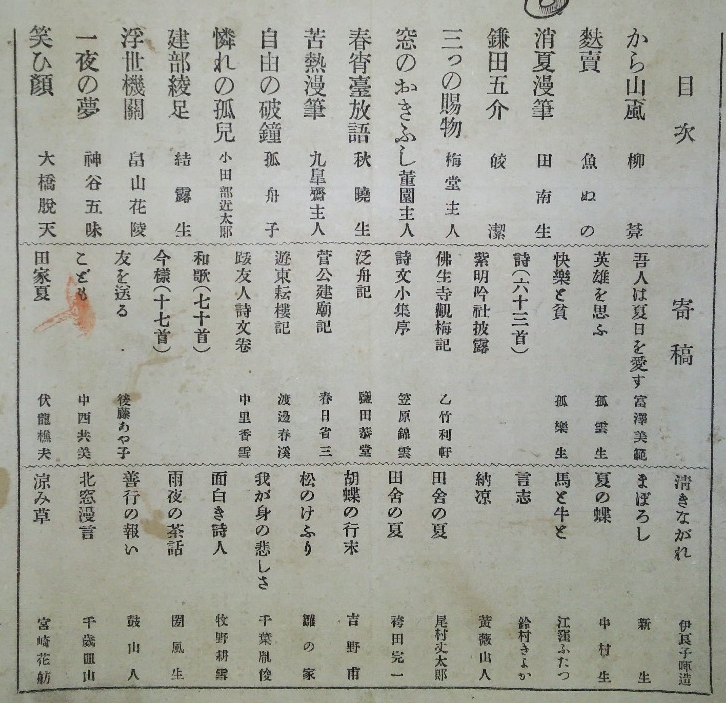 目次
から山颪 柳葊
麩賣 魚ぬの
消夏漫筆 田南生
鎌田五介 皎潔
三つの賜物 梅堂主人
窓のおきふし 董園主人
春宵臺放語 秋曉生
苦熱漫筆 九皐齋主人
自由の破鐘 孤舟子
憐れの孤兒 小田部近太郎
建部綾足 結露生
浮世機關 畠山花陵
一夜の夢 神谷五味
笑ひ顔 大橋脫天
寄稿
吾人は夏日を愛す 富澤美範
英雄を思ふ 孤雲生
快樂と貧 孤樂生
詩(六十三首)
紫明吟社披露
佛生寺觀梅記 乙竹利軒
詩文小集序 笠原錦雲
泛舟記 鹽田恭堂
菅公建廟記 春日省三
遊東耘樓記 渡邊春溪
跋友人詩文卷 中里香雪
和歌(七十首)
今樣(十七首)
友を送る 後藤あや子
こども 中西共美
田家夏 伏龍樵夫
淸きながれ 伊良子暉造
まぼろし 新生
夏の蝶 中村生
馬と牛と 江窪ふたつ
言志 鈴村きよか
納凉 黃薇山人
田舍の夏 尾村丈太郎
田舍の夏 袴田完一
胡蝶の行末 吉野甫
松のけふり 雛の家
我が身の悲しさ 千葉胤俊
面白き詩人 牧野耕雪
雨夜の茶話 園風生
善行の報い 鼓山人
北窓漫言 千歲皿山
涼み草 宮崎花舫